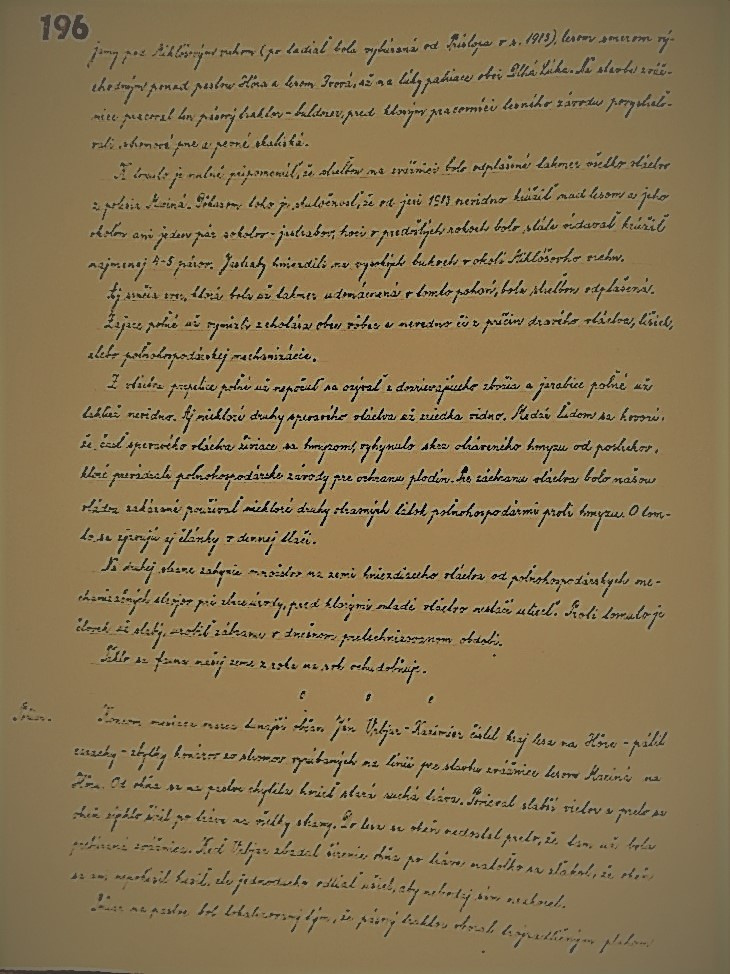 196
jamy pod Miklošovým vrchom (po ladial bola vyrúbaná od Príslopa v r. 1973), lesom smerom vý-
chodným ponad pastvu Hôra a lesom až na lúky patriace obci Dlhá Lúka. Na stavbe zváž-
nice pracoval len pásový traktor - buldozér, pred ktorým pracovníci lesného závodu
stromové pne a pevné skaliská.
K tomuto je nutné pripomenúť, že streľbou na zvážnici bolo odplašené takmer všetko vtáctvo
z polesia Maciná. Dôkazom toho je skutočnosť, že od jari 1973 nevidno krúžiť nad lesom a jeho
okolím ani jeden pár sokolov - jastrabov, hoci v predošlých rokoch bolo stále vídavať krúžiť
najmenej 4-5 párov. Jastraby hniezdili na vysokých bukoch v okolí Miklóšovho vrchu.
Aj srnčia zver, ktorá bola už takmer udomácnená v tomto pohorí, bola streľbou odplašená.
Zajace poľné už vymizli z chotára obce vôbec a nevedno či z príčin dravého vtáctva, líšiek,
alebo poľnohospodárskej mechanizácie.
Z vtáctva prepelice poľné už nepočuť sa ozývať z dozrievajúceho zbožia a jarabice poľné už
taktiež nevidno. Aj niektoré druhy spevavého vtáctva už zriedka vidno. Medzi ľudom sa hovorí,
že časť spevavého vtáctva živiace sa hmyzom, vyhynulo skrz otráveného hmyzu od postrekov,
ktoré prevádzali poľnohospodárske závody pre ochranu plodín. Pre záchranu vtáctva bolo našou
vládou zakázané používať niektoré druhy otravných látok poľnohospodármi proti hmyzu. O tom-
to sa zjavujú aj články v dennej tlači.
Na druhej strane zahynie množstvo na zemi hniezdiaceho vtáctva od poľnohospodárskych me-
chanizačných strojov pri zbere úrody, pred ktorými mladé vtáctvo nestačí utiecť. Proti tomuto je
človek už slabý, urobiť zábranu v dnešnom pretechnizovanom období.
Takto sa fauna našej zeme z roka na rok ochudobňuje.
Požiar.
Koncom mesiaca marca tunajší občan Ján Vrbjar - Kazimier čistil kraj lesa na Hôre - pálil
- zbytky konárov zo stromov vyrúbaných na línii pre stavbu zvážnice lesom Maciná na
Hôru. Od ohňa sa na pastve chytila hneď stará suchá tráva. Povieval slabší vietor a preto sa
oheň rýchlo šíril po tráve na všetky strany. Do lesa sa oheň nedostal preto, že tam už bola
zvážnica. Keď Vrbjar zbadal šírenie ohňa po tráve natoľko sa zľakol, že oheň
sa ani nepokúsil hasiť, ale jednoducho odtiaľ ušiel, aby nebodaj sám nezhorel.
Požiar na pastve bol lokalizovaný tým, že pásový traktor oboral trojradličným pluhom